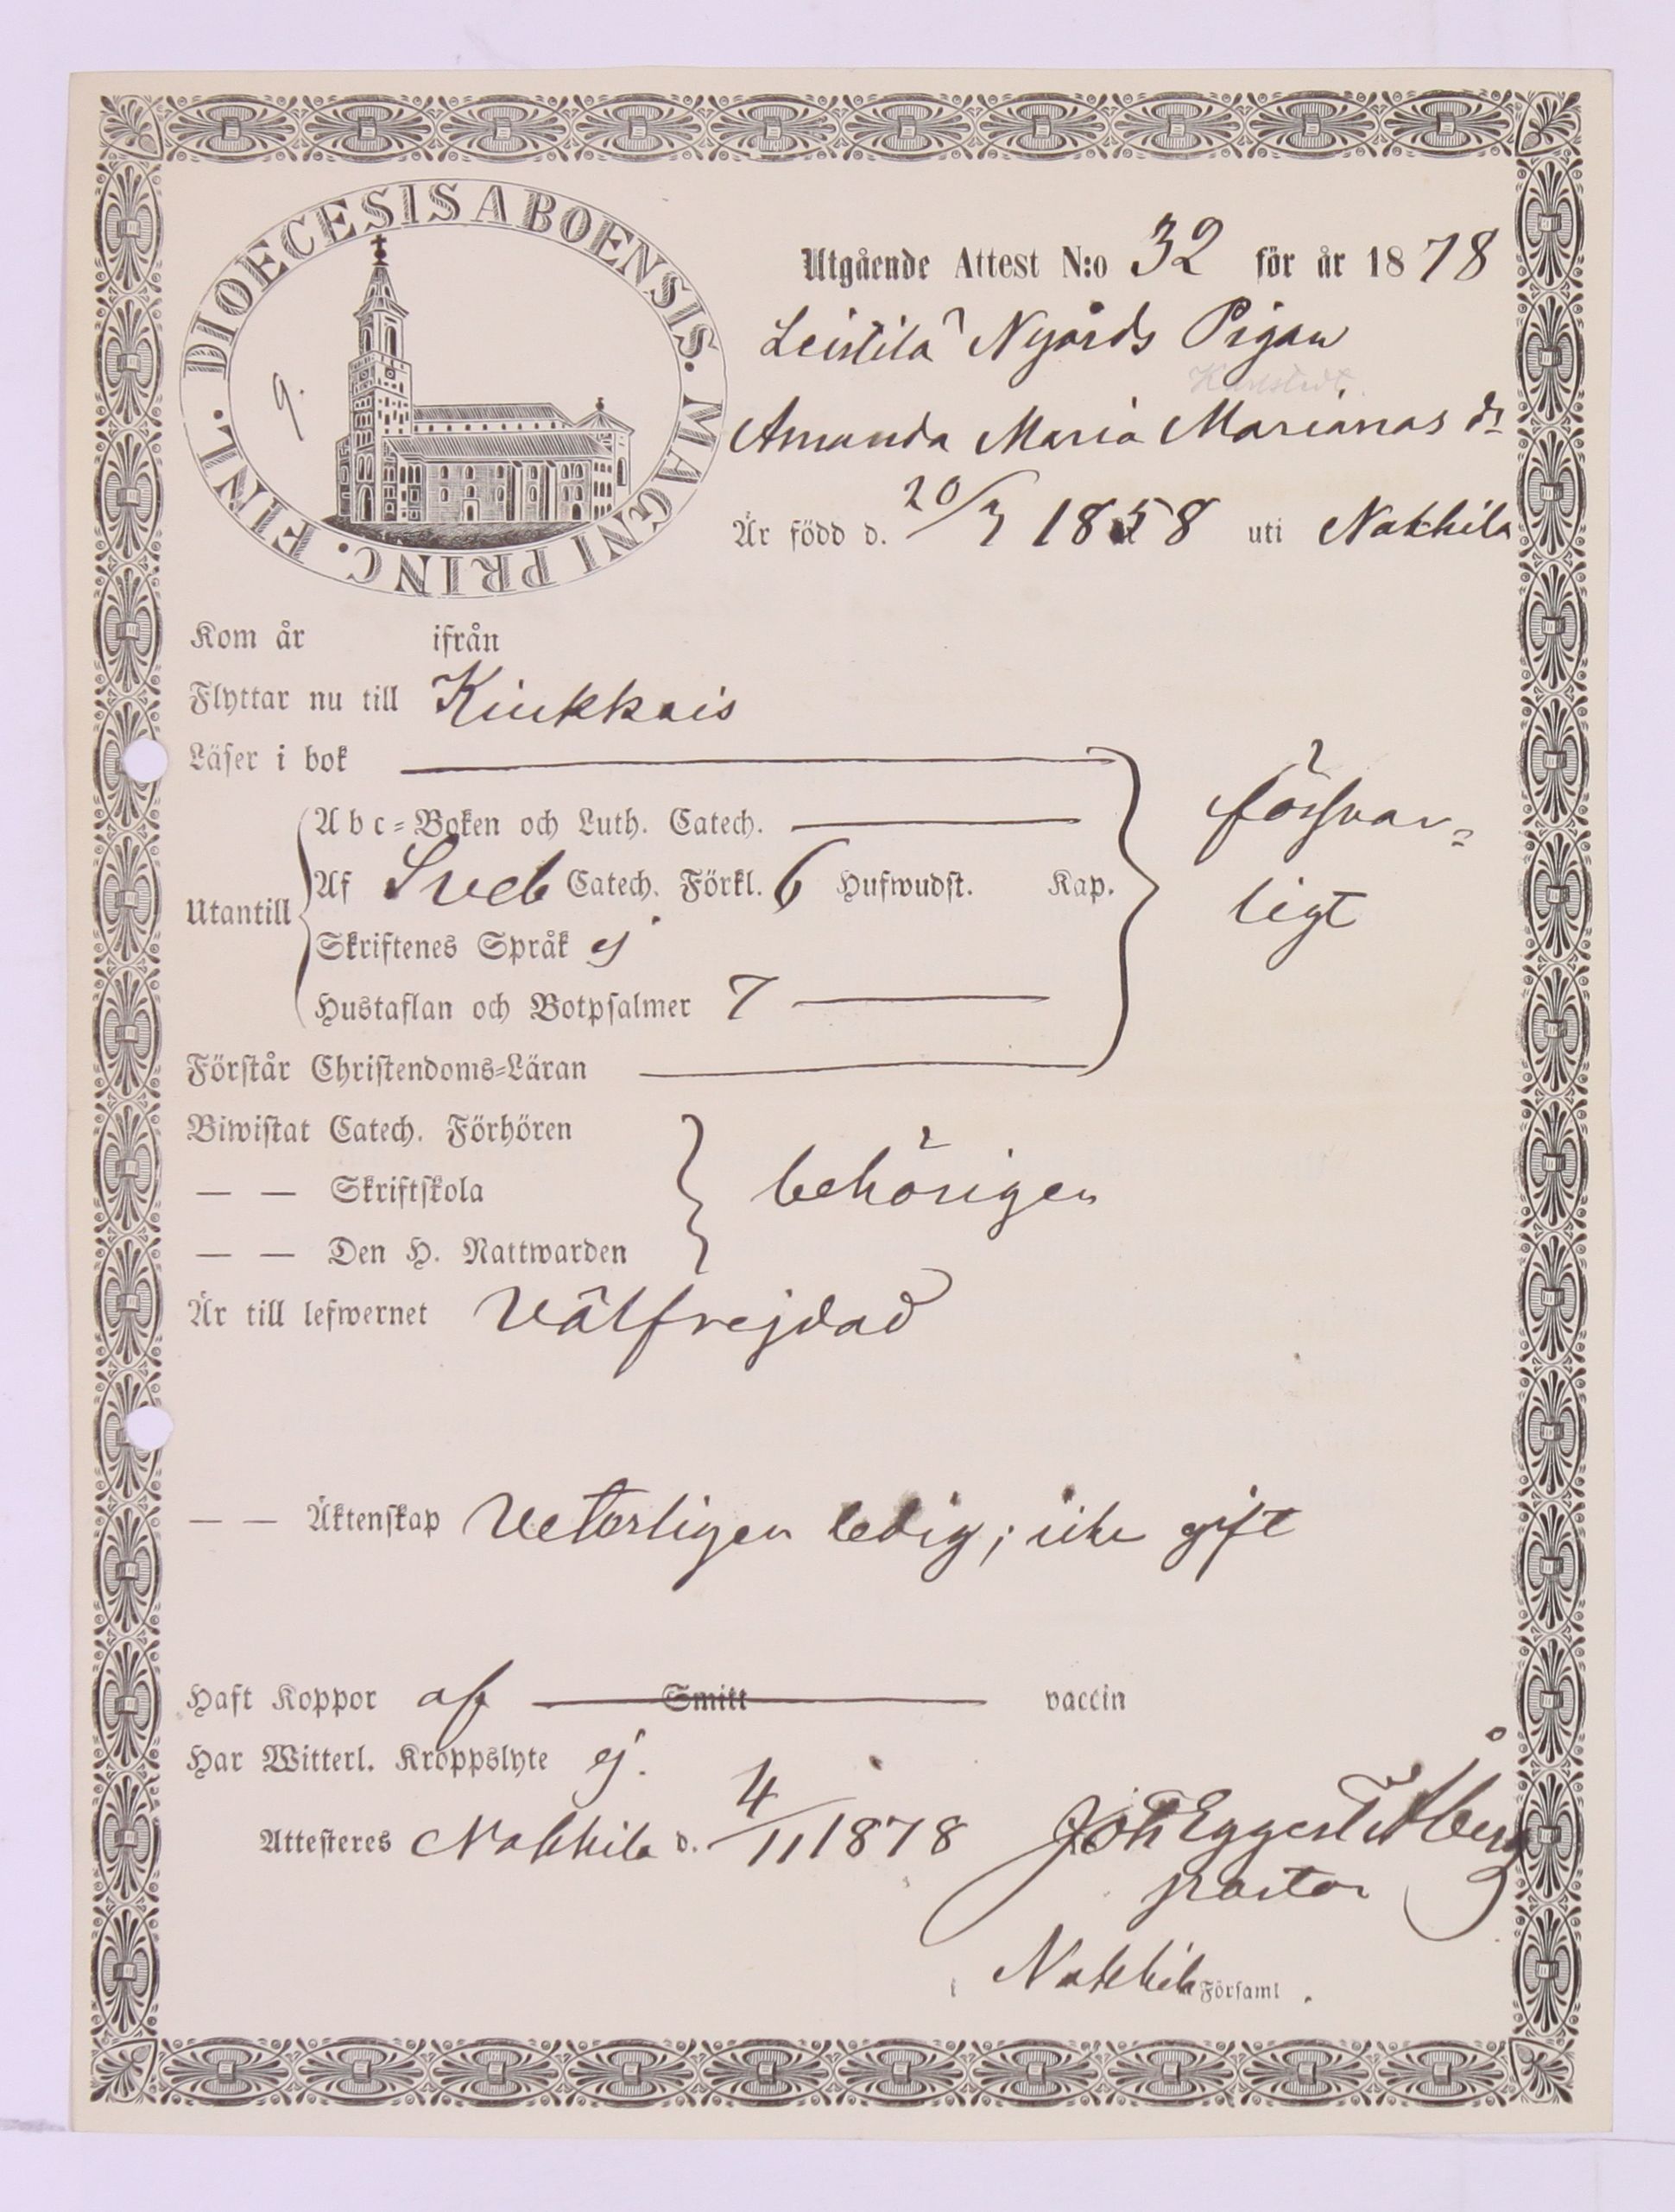 DIOECESIS ABOENSIS. MAGNI PRINC. FINL.
9.
Utgående Attest N:o 32 för år 1878
Leistilä Nygårds Pigan
Karlstedt
Amanda Maria Marianas dr
Är född d. 20/3 1858 uti Nakkila
Kom år ifrån
Flyttar nu till Kiukkais
Läser i bok
försvar=
Abc=Boken och Luth. Catech.
Utantill
Af Sveb Catech. Förkl. 6 Hufwudst. Kap.
ligt
Skriftenes Språk ej
Hustaflan och Botpsalmer 7
Förstår Christendoms=Läran
Biwistat Catech. Förhören
— — Skriftskola
behörigen
— — Den H. Nattwarden
Är till lefwernet Välfrejdad
— — Äktenskap Veterligen ledig; icke gift
Haft Koppor af Smitt vaccin
Har Witterl. Kroppslyte ej.
Attesteres Nakkila d. 4/11 1878 Joh Eggert
pastor
i Nakkila Församl.